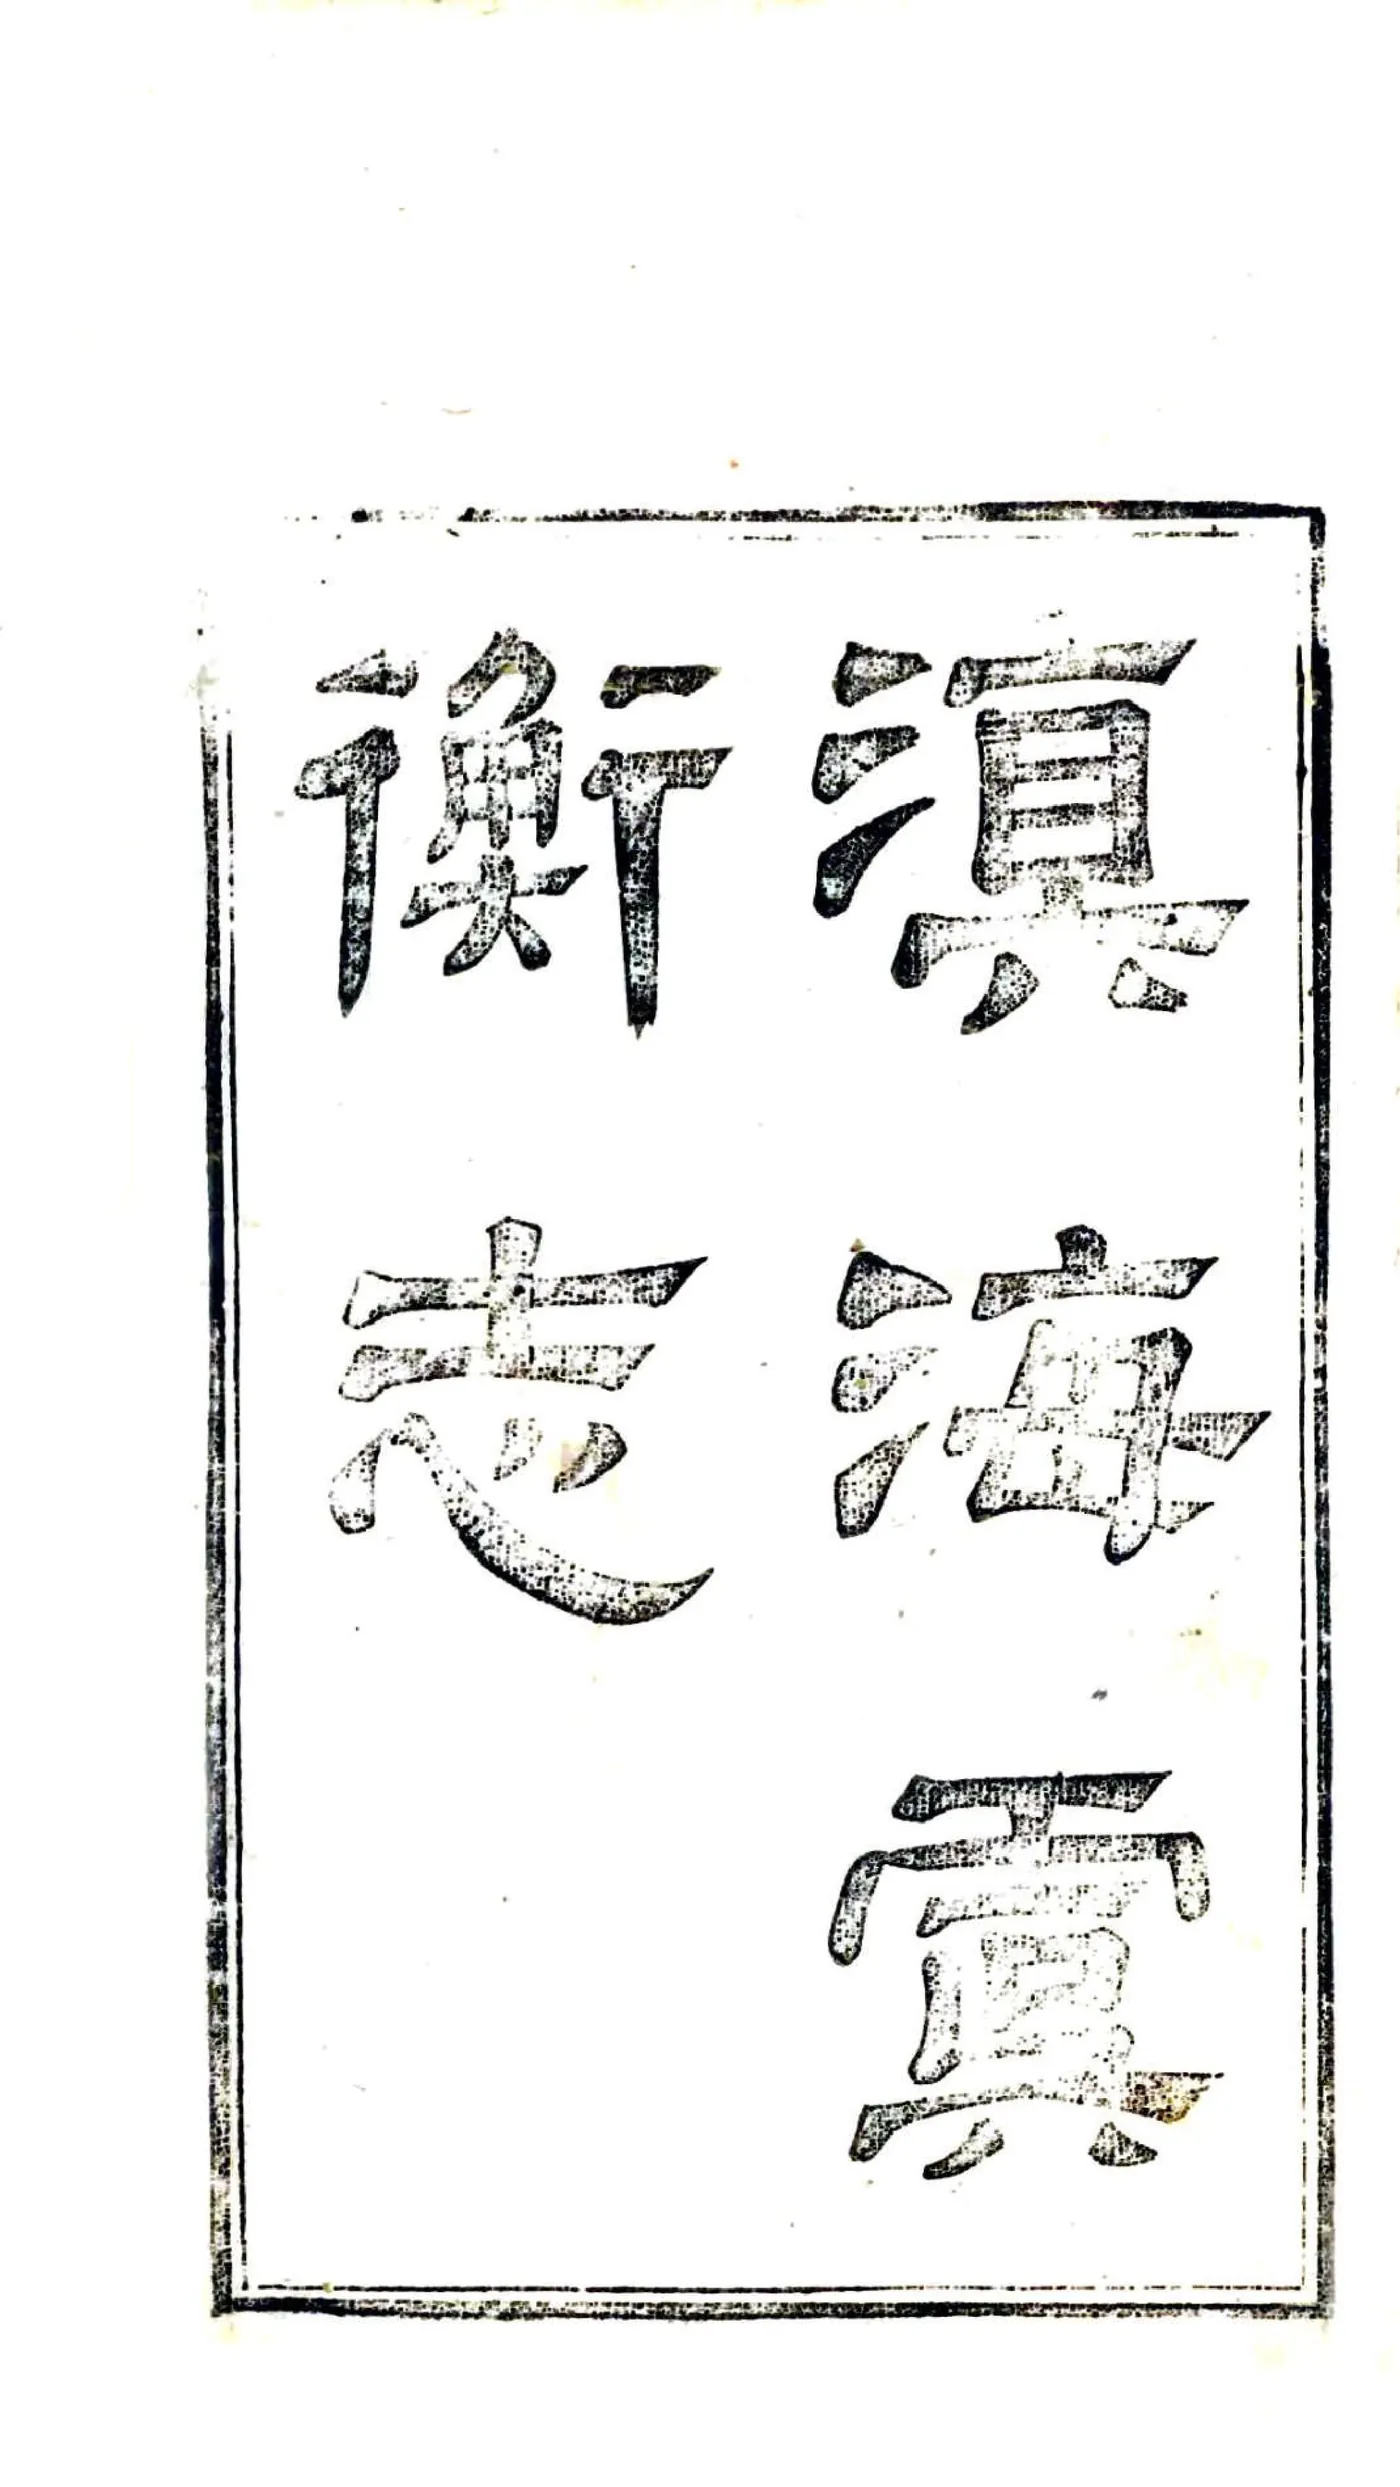 滇海虞
衡志